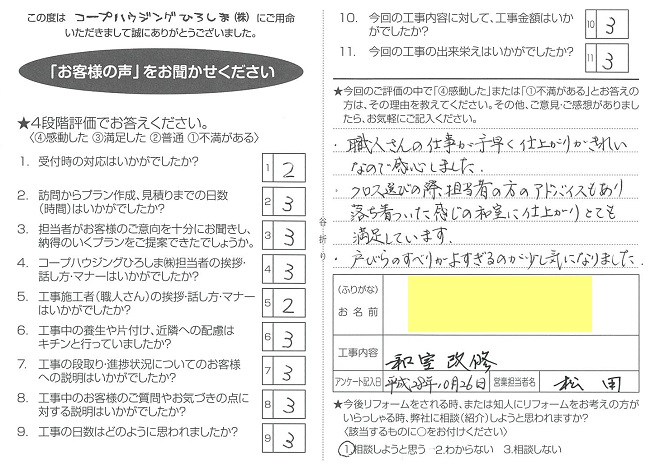 この度は コープハウジングひろしま(株) にご用命
いただきまして誠にありがとうございました。
「お客様の声」をお聞かせください
★4段階評価でお答えください。
〈④感動した ③満足した ②普通 ①不満がある〉
1. 受付時の対応はいかがでしたか? 1 2
2. 訪問からプラン作成、見積りまでの日数
(時間)はいかがでしたか? 2 3
3. 担当者がお客様のご意向を十分にお聞きし、
納得のいくプランをご提案できたでしょうか。 3 3
4. コープハウジングひろしま㈱担当者の挨拶・
話し方・マナーはいかがでしたか? 4 3
5. 工事施工者(職人さん)の挨拶・話し方・マナー
はいかがでしたか? 5 2
6. 工事中の養生や片付け、近隣への配慮は
キチンと行っていましたか? 6 3
7. 工事の段取り・進捗状況についてのお客様
への説明はいかがでしたか? 7 3
8. 工事中のお客様のご質問やお気づきの点に
対する説明はいかがでしたか? 8 3
9. 工事の日数はどのように思われましたか? 9 3
谷折り
10. 今回の工事内容に対して、工事金額はいか
がでしたか? 10 3
11. 今回の工事の出来栄えはいかがでしたか? 11 3
★今回のご評価の中で「④感動した」または「①不満がある」とお答え
の方は、その理由を教えてください。その他、ご意見・ご感想がありまし
たら、お気軽にご記入ください。
・職人さんの仕事が手早く仕上がりがきれい
なので感心しました。
・クロス選びの際、担当者の方のアドバイスもあり
落ち着ついた感じの和室に仕上がりとても
満足しています。
・戸びらのすべりがよすぎるのが少し気になりました。
(ふりがな)
お名前
工事内容 和室改修
アンケート記入日 平成28年10月26日 営業担当者名 松田
★今後リフォームをされる時、または知人にリフォームをお考えの方が
いらっしゃる時、弊社に相談(紹介)しようと思われますか?
〈該当するものに○をお付けください〉
①相談しようと思う 2.わからない 3.相談しない